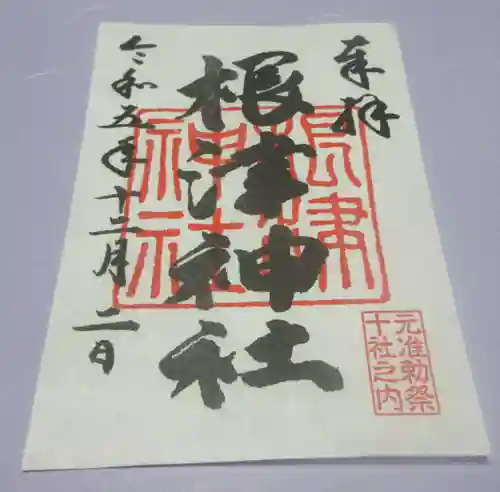 奉拝
根津神社
根津
神社
令和五年十二月二日
元准勅祭
十社之内